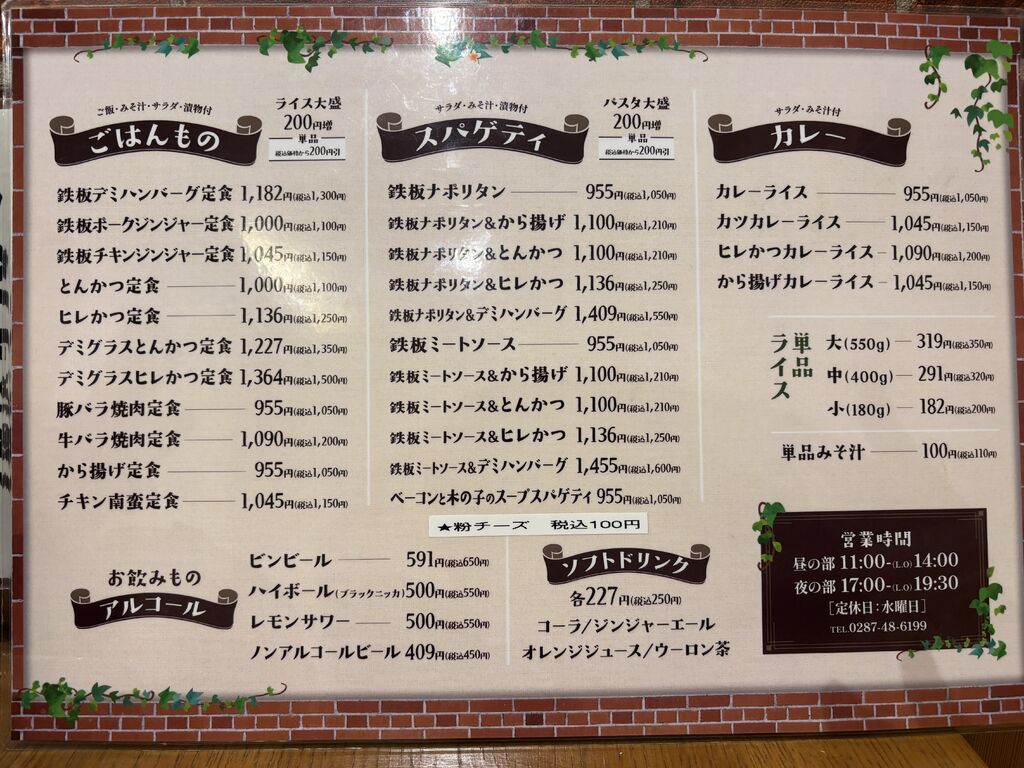 ご飯・みそ汁・サラダ・漬物付
ごはんもの
ライス大盛
200円増
単品
税込価格から200円引
鉄板デミハンバーグ定食 1,182円(税込1,300円)
鉄板ポークジンジャー定食 1,000円(税込1,100円)
鉄板チキンジンジャー定食 1,045円(税込1,150円)
とんかつ定食 1,000円(税込1,100円)
ヒレかつ定食 1,136円(税込1,250円)
デミグラスとんかつ定食 1,227円(税込1,350円)
デミグラスヒレかつ定食 1,364円(税込1,500円)
豚バラ焼肉定食 955円(税込1,050円)
牛バラ焼肉定食 1,090円(税込1,200円)
から揚げ定食 955円(税込1,050円)
チキン南蛮定食 1,045円(税込1,150円)
サラダ・みそ汁・漬物付
スパゲティ
パスタ大盛
200円増
単品
税込価格から200円引
鉄板ナポリタン 955円(税込1,050円)
鉄板ナポリタン&から揚げ 1,100円(税込1,210円)
鉄板ナポリタン&とんかつ 1,100円(税込1,210円)
鉄板ナポリタン&ヒレかつ 1,136円(税込1,250円)
鉄板ナポリタン&デミハンバーグ 1,409円(税込1,550円)
鉄板ミートソース 955円(税込1,050円)
鉄板ミートソース&から揚げ 1,100円(税込1,210円)
鉄板ミートソース&とんかつ 1,100円(税込1,210円)
鉄板ミートソース&ヒレかつ 1,136円(税込1,250円)
鉄板ミートソース&デミハンバーグ 1,455円(税込1,600円)
ベーコンと木の子のスープスパゲティ 955円(税込1,050円)
★粉チーズ 税込100円
サラダ・みそ汁付
カレー
カレーライス 955円(税込1,050円)
カツカレーライス 1,045円(税込1,150円)
ヒレかつカレーライス 1,090円(税込1,200円)
から揚げカレーライス 1,045円(税込1,150円)
単品
ライス
大(550g) 319円(税込350円)
中(400g) 291円(税込320円)
小(180g) 182円(税込200円)
単品みそ汁 100円(税込110円)
お飲みもの
アルコール
ビンビール 591円(税込650円)
ハイボール(ブラックニッカ) 500円(税込550円)
レモンサワー 500円(税込550円)
ノンアルコールビール 409円(税込450円)
ソフトドリンク
各227円(税込250円)
コーラ/ジンジャーエール
オレンジジュース/ウーロン茶
営業時間
昼の部 11:00-(L.O)14:00
夜の部 17:00-(L.O)19:30
[定休日:水曜日]
TEL.0287-48-6199